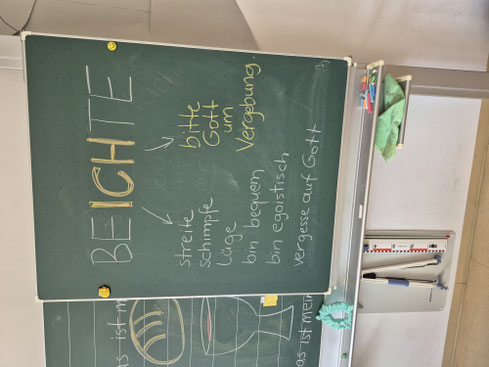 BEICHTE
streite
schimpfe
lüge
bin bequem
bin egoistisch
vergesse auf Gott
bitte
Gott
um
Vergebung.
as ist m
as ist mein